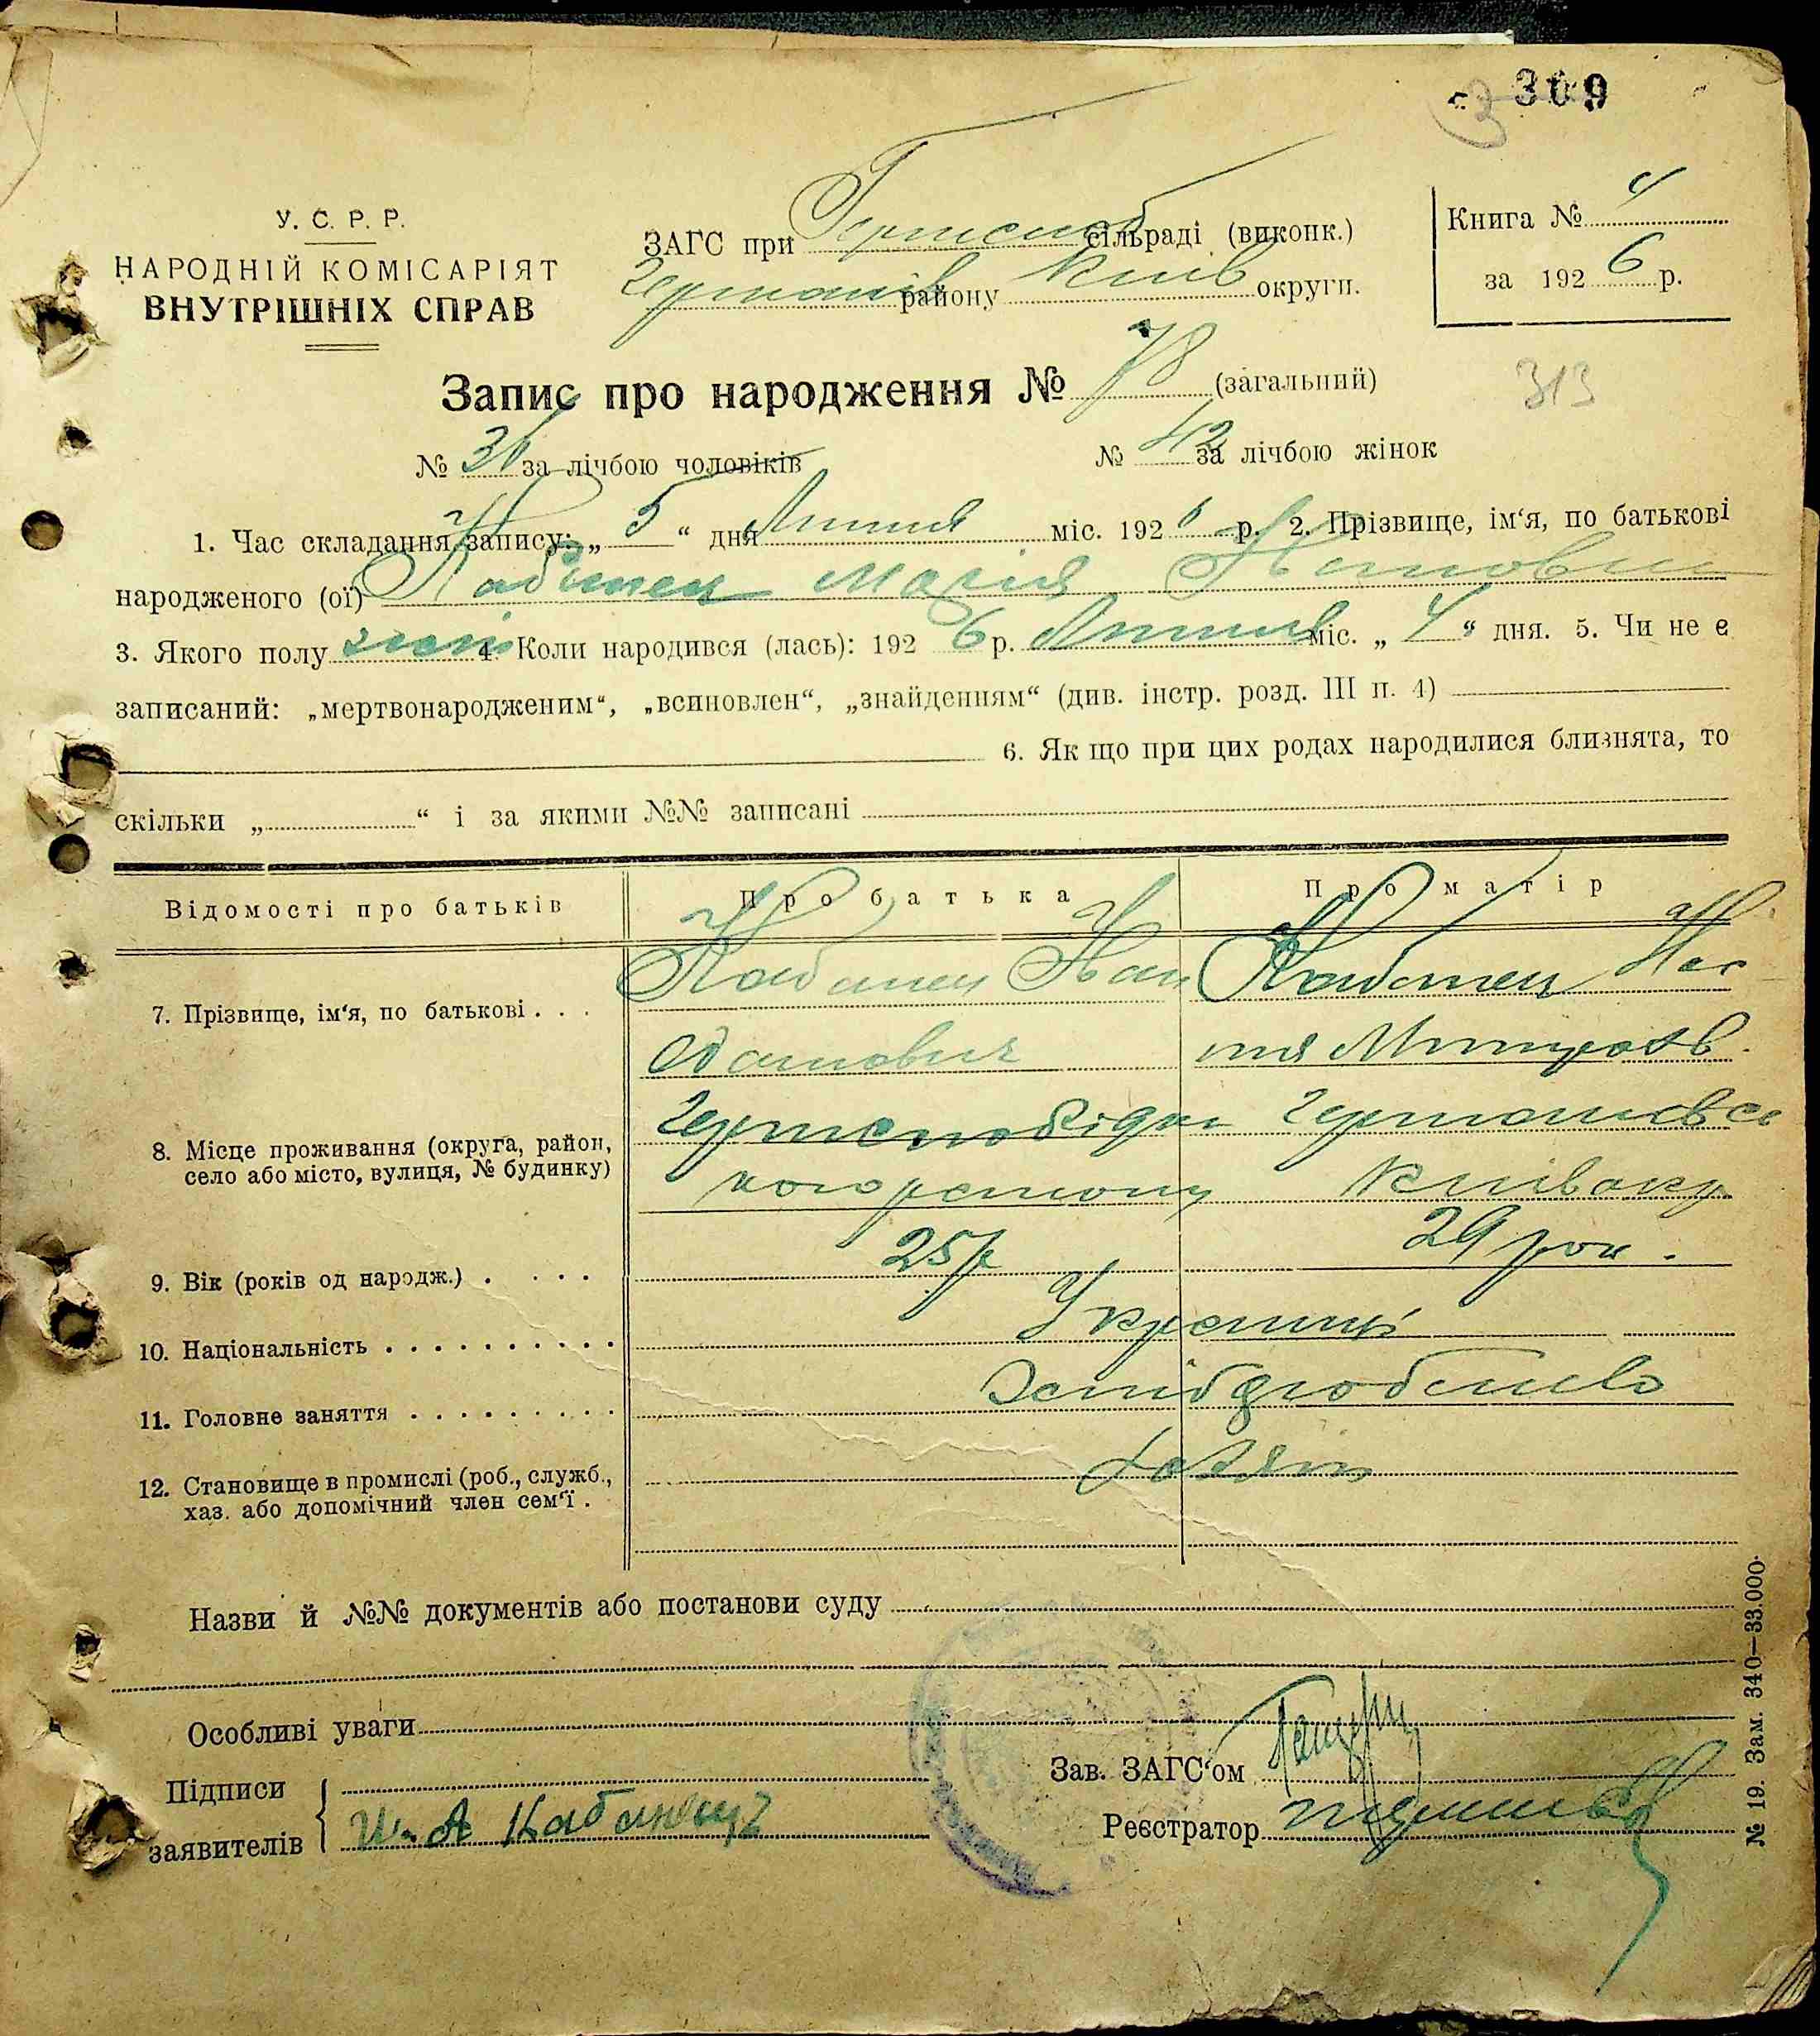 309
313
У. С. Р. Р.
НАРОДНІЙ КОМІСАРІЯТ
ВНУТРІШНІХ СПРАВ
ЗАГС при сільраді (виконк.)
району Київ округи.
Книга № 4
за 1926 р.
Запис про народження № 78 (загальний)
№ 36 за лічбою чоловіків № 42 за лічбою жінок
1. Час складання запису: „ 5 “ дня Липня міс. 1926 р. 2. Прізвище, ім‘я, по батькові
народженого (ої) Кабанец Марія Ивановна
3. Якого полу жін 4. Коли народився (лась): 1926 р. Липня міс. „ 4 “ дня. 5. Чи не є
записаний: „мертвонародженим“, „всиновлен“, „знайденням“ (див. інстр. розд. III п. 4)
6. Як що при цих родах народилися близнята, то
скільки „ “ і за якими №№ записані
Відомості про батьків Про батька Про матір
7. Прізвище, ім‘я, по батькові . . . Кабанец Иван Кабанец Нас
тя
8. Місце проживання (округа, район,
село або місто, вулиця, № будинку)
кого району Київ окр
9. Вік (років од народж.) . . . . 25 р 29 рок.
10. Національність . . . . . . . . . . Українці
11. Головне заняття . . . . . . . . .
12. Становище в промислі (роб., служб.,
хаз. або допомічний член сем‘ї .
Назви й №№ документів або постанови суду
Особливі уваги
Підписи
заявителів И. А Кабанец
Зав. ЗАГС‘ом
Реєстратор
№ 19. Зам. 340—33.000.